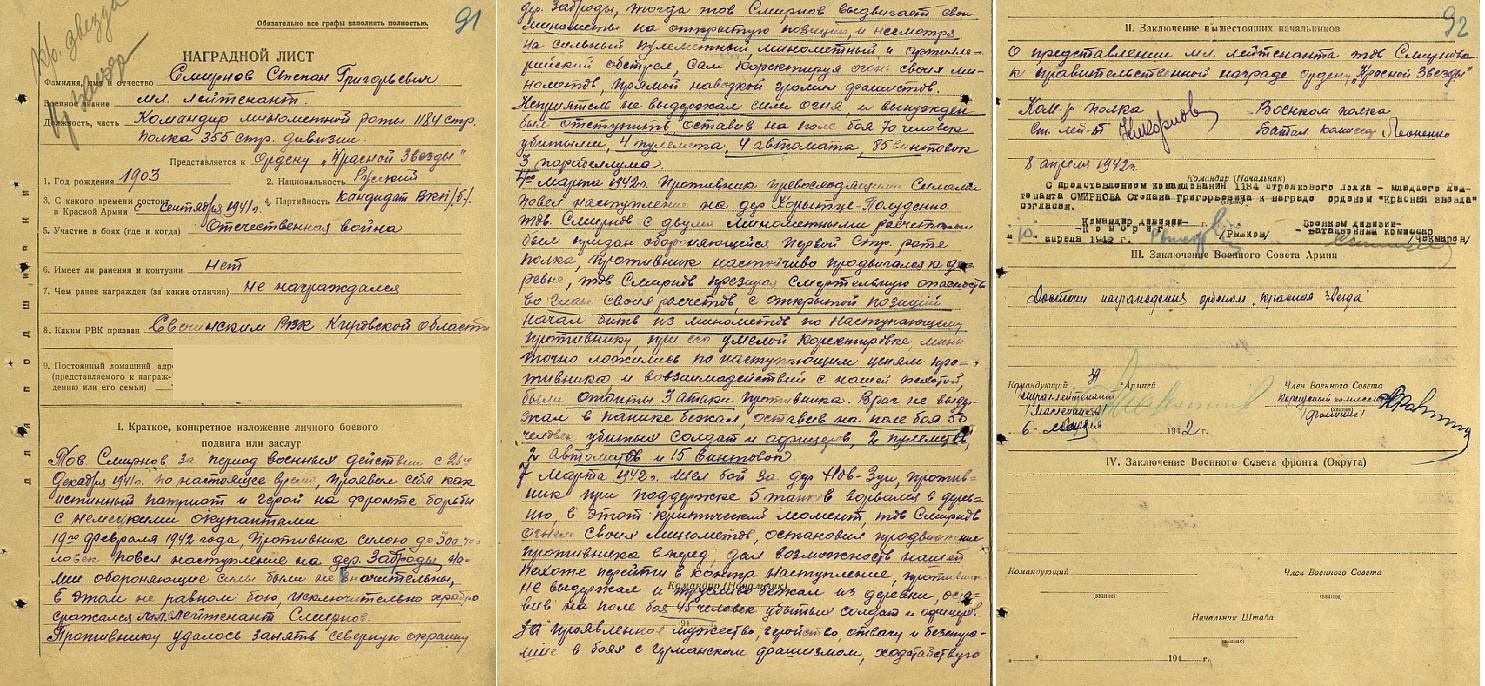 Обязательно все графы заполнить полностью.
91
Кр. звезда
НАГРАДНОЙ ЛИСТ
Фамилия, имя и отчество Смирнов Степан Григорьевич
Военное звание мл. лейтенант.
Должность, часть Командир минометной роты 1184 стр.
полка 355 стр. дивизии.
Представляется к Ордену „Красной Звезды"
1. Год рождения 1903 2. Национальность Русский
3. С какого времени состоит в Красной Армии с сентября 1941г. 4. Партийность Кандидат ВКП/б/.
5. Участие в боях (где и когда) Отечественная война
6. Имеет ли ранения и контузии Нет
7. Чем ранее награжден (за какие отличия) Не награждался
8. Каким РВК призван Свечинским РВК Кировской области
9. Постоянный домашний адре
(представляемого к награж-
дению или его семьи)
I. Краткое, конкретное изложение личного боевого
подвига или заслуг
Тов. Смирнов за период военных действий с 26го
декабря 1941г. по настоящее время, проявил себя как
истинный патриот и герой на фронте борьбы
с немецкими окупантами
19го февраля 1942 года, Противник силою до 300 че-
ловек повел наступление на дер. Заброды, на-
ши обороняющие силы были не значительны,
в этом не равном бою, исключительно храбро
сражался мл. лейтенант Смирнов.
Противнику удалось занять северную окраину
дер. Заброды, тогда тов Смирнов выдвигает свои
минометы на открытую позицию, и несмотря
на сильный пулеметный минометный и артилле-
рийский обстрел, сам коректируя огонь своих ми-
нометов, прямой наводкой громил фашистов.
Неприятель не выдержал силы огня, и вынужден
был отступить, оставив на поле боя 70 человек
убитыми, 4 пулемета, 4 автомата, 85 винтовок
3 порабеллума).
4го Марта 1942г. Противник превосходящими силами
повел наступление на дер. Хорытце-Полуденно
тов. Смирнов с двумя минометными расчетами
был придан обороняющейся первой стр. роте
полка, Противник настойчиво продвигался к де-
ревне, тов Смирнов презирая смертельную опасность
во главе своих расчетов, с открытой позиции
начал бить из минометов по наступающему
противнику, при его умелой коректировке, мины
точно ложились по наступающим цепям про-
тивника и во взаимодействии с нашей пехотой,
были отбиты 3 атаки противника. Враг не выдер-
жал в панике бежал, оставив на поле боя 35
человек убитых солдат и офицеров, 2 пулемета,
2 автоматов и 15 винтовок.
7 Марта 1942г. Шел бой за дер против-
ник при поддержке 5 танков ворвался в дерев-
ню, в этот критический момент, тов Смирнов
огнем своих минометов, остановил продвижение
противника вперед, дал возможность нашей
пехоте перейти в контр наступление, противник
не выдержал и трусливо бежал из деревни, оста-
вив на поле боя 45 человек убитых солдат и офицеров.
Командир (Начальник)
За проявленное мужество, геройство, отвагу и бесстра-
шие в боях с германским фашизмом, ходатайствую
92
II. Заключение вышестоящих начальников
О представлении мл. лейтенанта тов Смирнова
к правительственной награде Ордену „Красной Звезды"
Ком-р полка Военком полка
Ст. лей-т Батал. комиссар
8 апреля 1942г.
Командир (Начальник)
С представлением командования 1184 стрелкового полка - младшего лей-
тенанта СМИРНОВА Степана Григорьевича к награде орденом "Красная звезда"
согласен.
Командир дивизии- Военком дивизии-
/Рыжков/
апреля 1942 г.
III. Заключение Военного Совета Армии
Достоин награждения орденом „Красная Звезда"
Командующий Армией Член Военного Совета
генерал-лейтенант
(звание)
1942 г.
IV. Заключение Военного Совета фронта (Округа)
Командующий Член Военного Совета
(звание) (звание)
Начальник Штаба
(звание)
„ " 194 г.